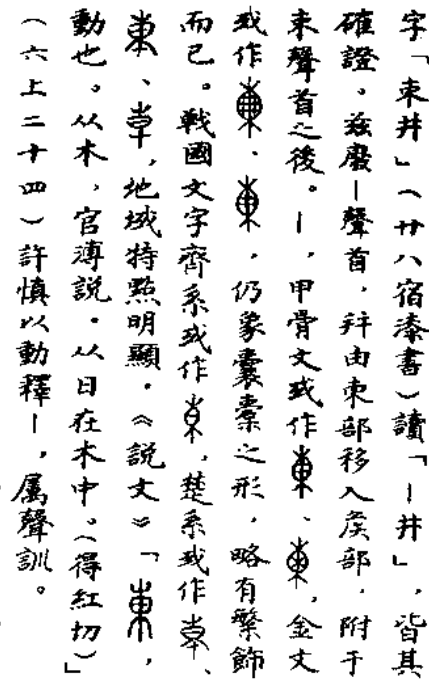 字「束井」（廿八宿漆書）讀「—井」，皆其
確證。茲廢—聲首，并由東部移入侯部，附于
束聲首之後。—，甲骨文或作、，金文
或作、，仍象囊橐之形，略有繁飾
而已。戰國文字齊系或作，楚系或作、
、，地域特點明顯。《說文》「，
動也。从木，官溥說。从日在木中。（得紅切）」
（六上二十四）許慎以動釋—，屬聲訓。